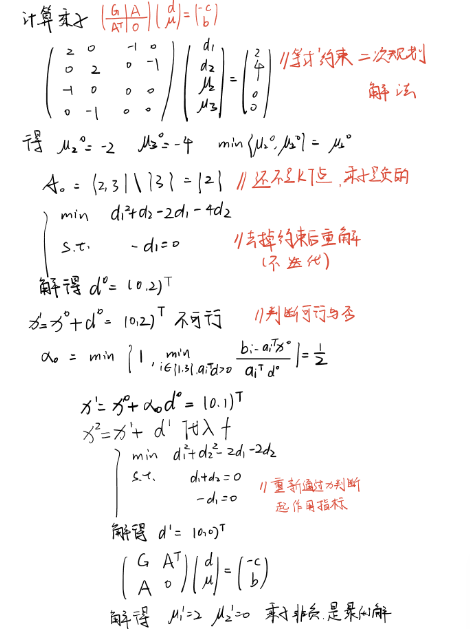 计算乘子 (G A
A^T 0)(d
μ)=(-c
b)
(2 0 -1 0
0 2 0 -1
-1 0 0 0
0 -1 0 0)(d₁
d₂
μ₂
μ₃)=(2
4
0
0) //等式约束二次规划
解法
得 μ₂⁰=-2 μ₃⁰=-4 min{μ₂⁰,μ₃⁰}=μ₃⁰
A₀={2,3}\{3}={2} //还不是KT点,乘子是负的
min d₁²+d₂-2d₁-4d₂
s.t. -d₁=0 //去掉约束后重解
(不迭代)
解得 d⁰=(0,2)^T
x¹=x⁰+d⁰=(0,2)^T 不可行 //判断可行与否
α₀=min{1, min i∈{1,3},aᵢ^Td>0 (bᵢ-aᵢ^Tx⁰)/(aᵢ^Td⁰)}=1/2
x¹=x⁰+α₀d⁰=(0,1)^T
x²=x¹+d¹代入f
min d₁²+d₂²-2d₁-2d₂
s.t. d₁+d₂=0
-d₁=0 //重新通过x¹判断
起作用指标
解得 d¹=(0,0)^T
(G A^T
A 0)(d
μ)=(-c
b)
解得 μ₁¹=2 μ₂¹=0 乘子非负,是最优解